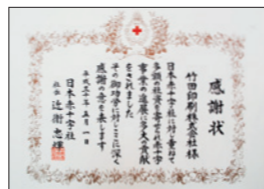 感謝状
竹田印刷株式会社様
日本赤十字社に対し重ねて
多額の社資を寄せられ赤十字
事業の進展に多大の貢献
をされました
その御功労に対しここに深く
感謝の意を表します
平成三十年五月一日
日本赤十字社
社長 近衞忠煇